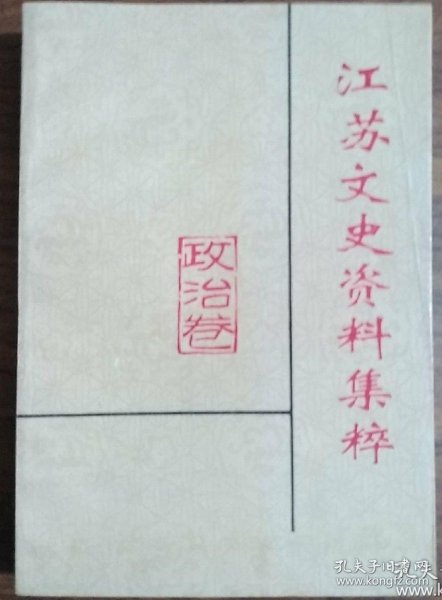 江苏文史资料集粹
政治卷
孔夫子旧书网